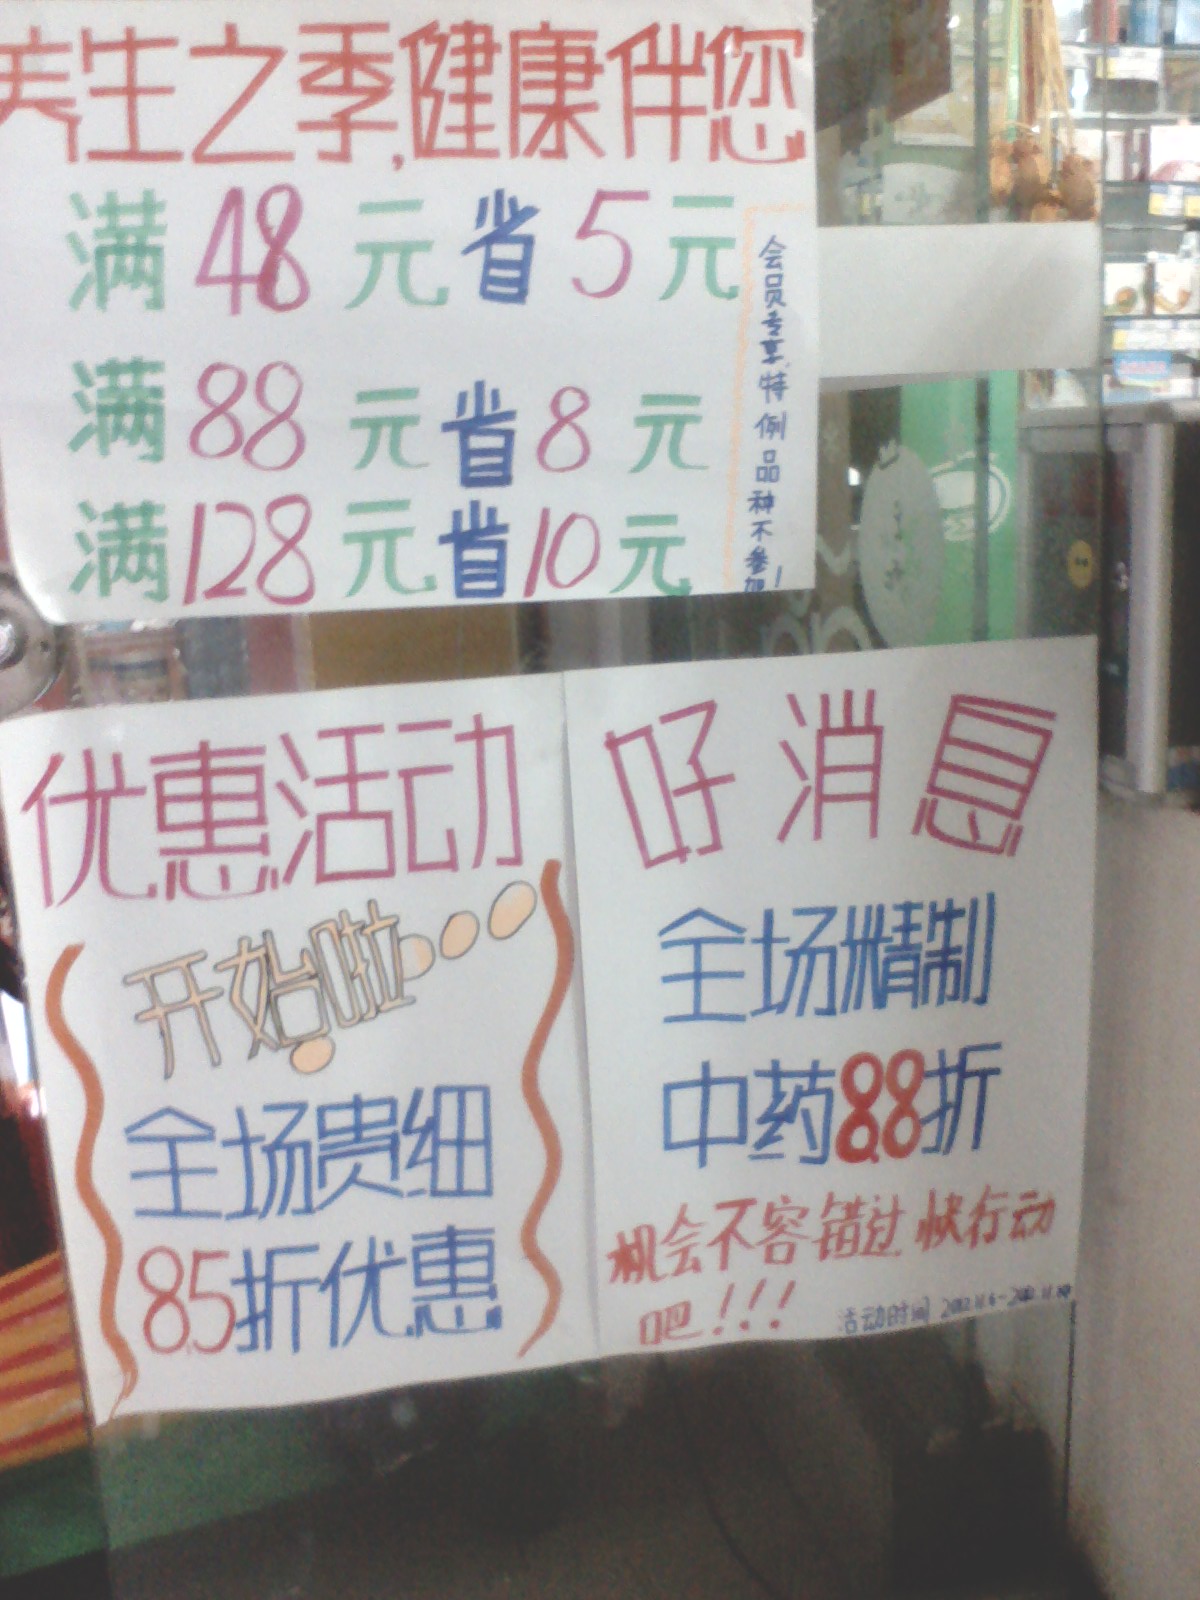 养生之季,健康伴您
满48元省5元
满88元省8元
满128元省10元
会员专享,特例品种不参加!
优惠活动
开始啦
全场贵细
8.5折优惠
好消息
全场精制
中药8.8折
机会不容错过 快行动
吧!!!
活动时间